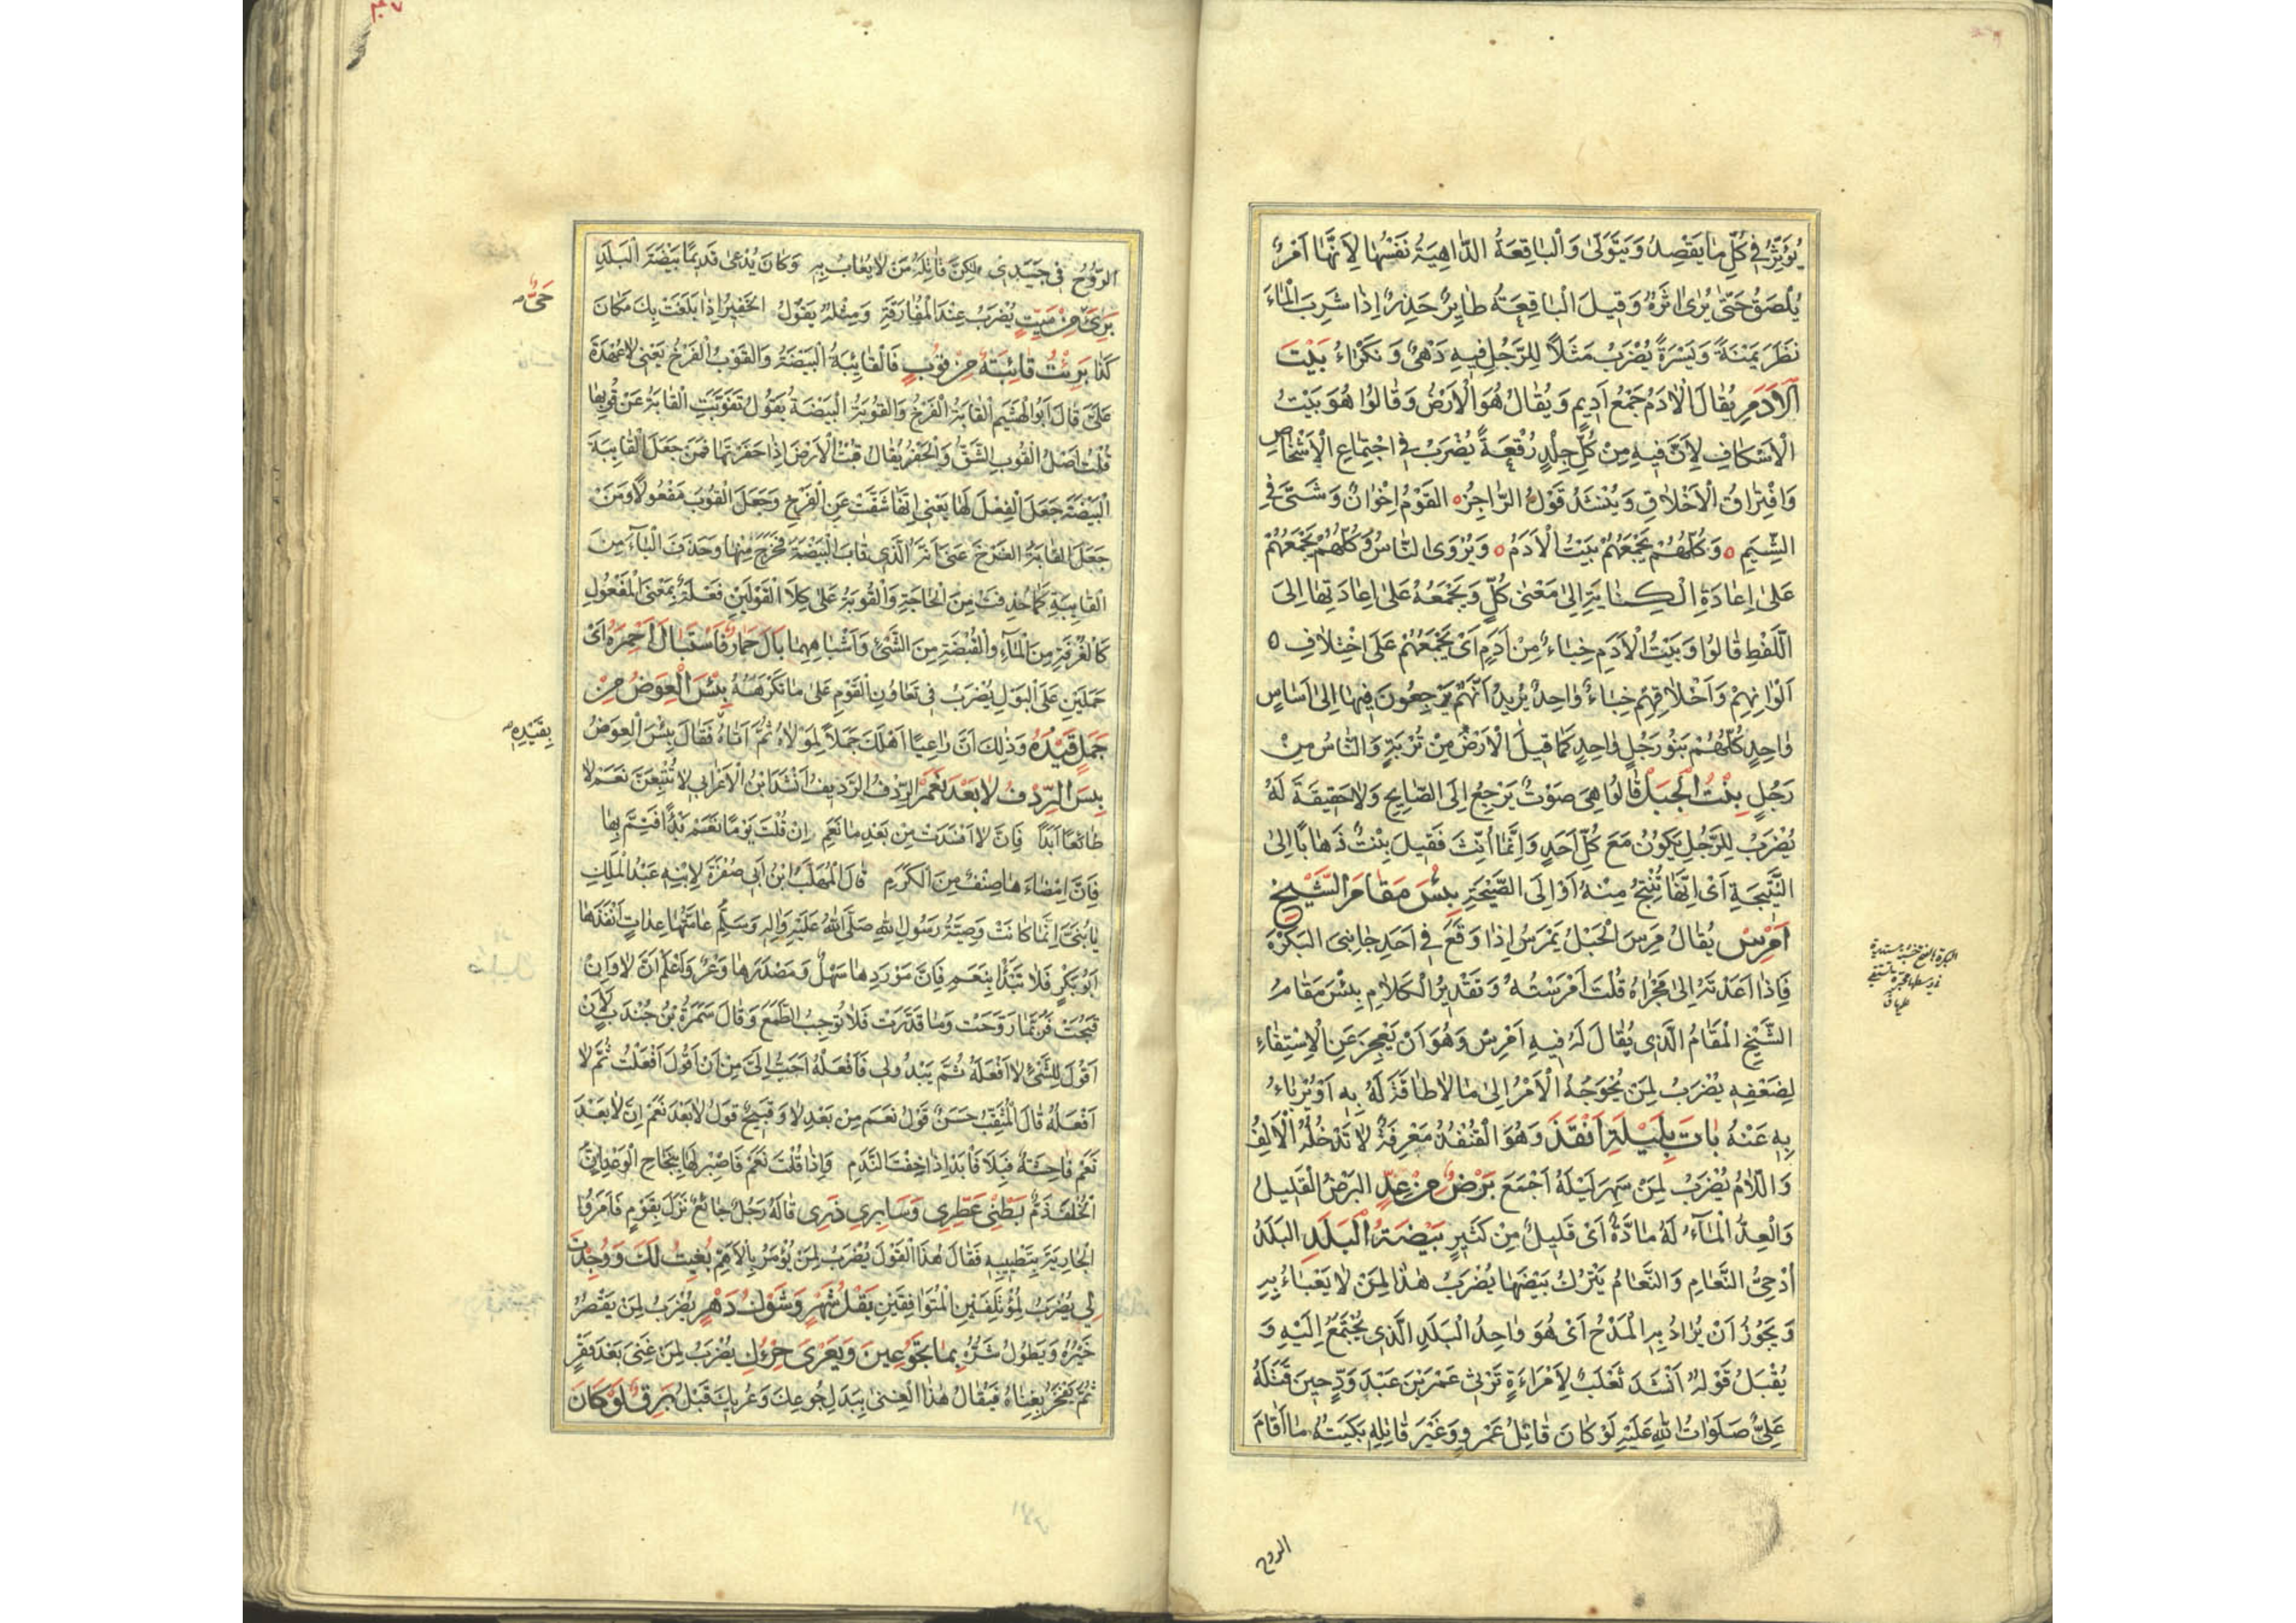 يُؤَثِّرُ فِي كُلِّ مَا يَقْصِدُ وَيَتَوَلَّى وَالْبَاقِعَةُ الدَّاهِيَةُ نَفْسُهَا لِأَنَّهَا أَمْرٌ
يُلْصَقُ حَتَّى يُرَى أَثَرُهُ وَقِيلَ الْبَاقِعَةُ طَايِرٌ حَذِرٌ إِذَا شَرِبَ الْمَاءَ
نَظَرَ يَمْنَةً وَيَسْرَةً يُضْرَبُ مَثَلًا لِلرَّجُلِ فِيهِ دَهْىٌ وَنَكْرَاءُ بَيْتُ
الْأَدَمِ يُقَالُ الْأَدَمُ جَمْعُ أَدِيمٍ وَيُقَالُ هُوَ الْأَرْضُ وَقَالُوا هُوَ بَيْتُ
الْأَسْكَافِ لِأَنَّ فِيهِ مِنْ كُلِّ جِلْدٍ رُقْعَةً يُضْرَبُ فِي اجْتِمَاعِ الْأَشْخَاصِ
وَافْتِرَاقُ الْأَخْلَاقِ وَيُنْشَدُ قَوْلُ الرَّاجِزُ ٥ الْقَوْمُ إِخْوَانٌ وَشَتَّى فِي
الشِّيَمِ ٥ وَكُلُّهُمْ يَجْمَعُهُمْ بَيْتُ الْأَدَمْ ٥ وَيُرْوَى النَّاسُ وَكُلُّهُمْ يَجْمَعُهُمْ
عَلَى إِعَادَةِ الْكِنَايَةِ إِلَى مَعْنَى كُلٍّ وَيَجْمَعُهُ عَلَى إِعَادَتِهَا إِلَى
اللَّفْظِ قَالُوا وَبَيْتُ الْأَدَمِ خِبَاءٌ مِنْ أَدَمٍ أَىْ يَجْمَعُهُمْ عَلَى اخْتِلَافِ ٥
أَلْوَانِهِمْ وَأَخْلَاقِهِمْ خِبَاءٌ وَاحِدٌ يُرِيدُ أَنَّهُمْ يَرْجِعُونَ فِيهَا إِلَى أَسَاسٍ
وَاحِدٍ كُلُّهُمْ بَنُو رَجُلٍ وَاحِدٍ كَمَا قِيلَ الْأَرْضُ مِنْ تُرْبَةٍ وَالنَّاسُ مِنْ
رَجُلٍ بِنْتُ الْجَبَلِ قَالُوا هِيَ صَوْتٌ يَرْجِعُ إِلَى الصَّايِحِ وَلَا حَقِيقَةَ لَهُ
يُضْرَبُ لِلرَّجُلِ يَكُونُ مَعَ كُلِّ أَحَدٍ وَإِنَّمَا أُنِّثَ فَقِيلَ بِنْتُ ذَهَابًا إِلَى
النَّتِيجَةِ أَىْ إِنَّهَا تُنْتَجُ مِنْهُ أَوْ إِلَى الصَّيْحَةِ بِئْسَ مَقَامُ الشَّيْخِ
أَمْرِسْ يُقَالُ مَرِسَ الْحَبْلُ يَمْرَسُ إِذَا وَقَعَ فِي أَحَدِ جَانِبَيِ الْبَكْرَةِ
فَإِذَا أَعَدْتَهُ إِلَى مَجْرَاهُ قُلْتَ أَمْرَسْتُهُ وَتَقْدِيرُ الْكَلَامِ بِئْسَ مَقَامُ
الشَّيْخِ الْمَقَامُ الَّذِي يُقَالُ لَهُ فِيهِ أَمْرِسْ وَهُوَ أَنْ يَعْجِزَ عَنِ الْاِسْتِقَاءِ
لِضَعْفِهِ يُضْرَبُ لِمَنْ يُحْوِجُهُ الْأَمْرُ إِلَى مَا لَا طَاقَةَ لَهُ بِهِ أَوْ يُرْبَاءُ
بِهِ عَنْهُ بَاتَ بِلَيْلَةِ أَنْقَذَ وَهُوَ الْقُنْفُذُ مَعْرِفَةٌ لَا تَدْخُلُهُ الْأَلِفُ
وَاللَّامُ يُضْرَبُ لِمَنْ سَهِرَ لَيْلَهُ أَجْمَعَ بَرْضٌ مِنْ عِدٍّ الْبَرْضُ الْقَلِيلُ
وَالْعِدُّ الْمَاءُ لَهُ مَادَّةٌ أَىْ قَلِيلٌ مِنْ كَثِيرٍ بَيْضَةُ الْبَلَدِ الْبَلَدُ
أُدْحِيُّ النَّعَامِ وَالنَّعَامُ يَتْرُكُ بَيْضَهَا يُضْرَبُ هَذَا لِمَنْ لَا يُعْبَاءُ بِهِ
وَيَجُوزُ أَنْ يُرَادَ بِهِ الْمَدْحُ أَىْ هُوَ وَاحِدُ الْبَلَدِ الَّذِي يُجْتَمَعُ إِلَيْهِ وَ
يُقْبَلُ قَوْلُهُ أَنْشَدَ ثَعْلَبٌ لِاِمْرَاءَةٍ تَرْثِي عَمْرَو بْنَ عَبْدِ وَدٍّ حِينَ قَتَلَهُ
عَلِيٌّ صَلَوَاتُ اللهِ عَلَيْهِ لَوْ كَانَ قَاتِلُ عَمْرٍو غَيْرَ قَاتِلِهِ بَكَيْتُهُ مَا أَقَامَ
الروح
الرُّوحُ فِي جَسَدِي لَكِنَّ قَاتِلَهُ مَنْ لَا يُعَابُ بِهِ وَكَانَ يُدْعَى قَدِيمًا بَيْضَةَ الْبَلَدِ
بَرِئَ مِنْ مَيِّتٍ يُضْرَبُ عِنْدَ الْمُفَارَقَةِ وَمِثْلُهُ يَقُولُ الْخَفِيرُ إِذَا بَلَغْتُ بِكَ مَكَانَ
حَيٌّ
كَذَا بَرِئْتُ قَائِبَةٌ مِنْ قُوبٍ فَالْقَائِبَةُ الْبَيْضَةُ وَالْقُوبُ الْفَرْخُ يَعْنِي لَا عُهْدَةَ
عَلَيَّ قَالَ أَبُو الْهَيْثَمِ الْقَابَةُ الْفَرْخُ وَالْقُوبَةُ الْبَيْضَةُ يَقُولُ تَقَوَّبَتِ الْقَابَةُ عَنْ قُوبِهَا
قُلْتُ أَصْلُ الْقُوبِ الشَّقُّ وَالْحَفْرُ يُقَالُ قُبْتُ الْأَرْضَ إِذَا حَفَرْتَهَا فَمَنْ جَعَلَ الْقَائِبَةَ
الْبَيْضَةَ جَعَلَ الْفِعْلَ لَهَا يَعْنِي إِنَّهَا شَقَّتْ عَنِ الْفَرْخِ وَجَعَلَ الْقُوبَ مَفْعُولًا وَمَنْ
جَعَلَ الْقَابَةَ الْفَرْخَ عَنَى أَنَّهُ الَّذِي قَابَ الْبَيْضَةَ فَخَرَجَ مِنْهَا وَحَذَفَ الْيَاءَ مِنَ
الْقَايِبَةِ كَمَا حُذِفَ مِنَ الْحَاجَةِ وَالْقُوبَةُ عَلَى كِلَا الْقَوْلَيْنِ فُعْلَةٌ بِمَعْنَى الْمَفْعُولِ
كَالْغُرْفَةِ مِنَ الْمَاءِ وَالْقُبْضَةِ مِنَ الشَّيْءِ وَأَشْبَاهِهِمَا بَالَ حِمَارٌ فَاسْتَبَالَ أَحْمِرَةً أَىْ
حَمَلَهُنَّ عَلَى الْبَوْلِ يُضْرَبُ فِي تَعَاوُنِ الْقَوْمِ عَلَى مَا تَكْرَهُهُ بِئْسَ الْعِوَضُ مِنْ
جَمَلٍ قَيْدُهُ وَذَلِكَ أَنَّ رَاعِيًا أَهْلَكَ جَمَلًا لِمَوْلَاهُ ثُمَّ أَتَاهُ فَقَالَ بِئْسَ الْعِوَضُ
بِقَيْدِهِ
بِئْسَ الرِّدْفُ لَا بَعْدَ نَعَمْ الرِّدْفُ الرَّدِيفُ أَنْشَدَ ابْنُ الْأَعْرَابِي لَا تُتْبِعَنَّ نَعَمْ لَا
طَائِعًا أَبَدًا فَإِنَّ لَا أَفْسَدَتْ مِنْ بَعْدِ مَا نَعَمِ إِنْ قُلْتَ يَوْمًا نَعَمْ بَدْأً فَتِمَّ بِهَا
فَإِنَّ إِمْضَاءَهَا صِنْفٌ مِنَ الْكَرَمِ قَالَ الْمُهَلَّبُ ابْنُ أَبِي صُفْرَةَ لِابْنِهِ عَبْدِ الْمَلِكِ
يَا بُنَيَّ إِنَّمَا كَانَتْ وَصِيَّةُ رَسُولِ اللهِ صَلَّى اللهُ عَلَيْهِ وَآلِهِ وَسَلَّمَ عَامَّتُهَا عِدَاتٌ أَنْفَذَهَا
أَبُو بَكْرٍ فَلَا تَبْدَأْ بِنَعَمْ فَإِنَّ مَوْرِدَهَا سَهْلٌ وَمَصْدَرَهَا وَعْرٌ وَاعْلَمْ أَنَّ لَا وَإِنْ
قَبُحَتْ فَرُبَّمَا رَوَّحَتْ وَمَا قَدَرْتَ فَلَا تُوجِبِ الطَّمَعَ وَقَالَ سَمُرَةُ بْنُ جُنْدَبٍ لَأَنْ
أَقُولَ لِلشَّيْءِ لَا أَفْعَلُهُ ثُمَّ يَبْدُو لِي فَأَفْعَلُهُ أَحَبُّ إِلَيَّ مِنْ أَنْ أَقُولَ أَفْعَلُ ثُمَّ لَا
أَفْعَلُهُ قَالَ الْمُثَقِّبُ حَسَنٌ قَوْلُ نَعَمْ مِنْ بَعْدِ لَا وَقَبِيحٌ قَوْلُ لَا بَعْدَ نَعَمْ إِنَّ لَا بَعْدَ
نَعَمْ فَاحِشَةٌ فَبِلَا فَابْدَأْ إِذَا خِفْتَ النَّدَمِ وَإِذَا قُلْتَ نَعَمْ فَاصْبِرْ لَهَا بِنَجَاحِ الْوَعْدِ إِنَّ
الْخُلْفَ ذَمٌّ بَطْنِي عَطِّرِي وَسَايِرِي ذَرِي قَالَهُ رَجُلٌ جَائِعٌ نَزَلَ بِقَوْمٍ فَأَمَرُوا
الْجَارِيَةَ بِتَطْيِيبِهِ فَقَالَ هَذَا الْقَوْلَ يُضْرَبُ لِمَنْ يُؤْمَرُ بِالْأَهَمِّ بُغِيتُ لَكَ وَوُجِدْتَ
لِي يُضْرَبُ لِمُؤْتَلِفَيْنِ الْمُتَوَافِقَيْنِ بَقْلُ شَهْرٍ وَشَوْكُ دَهْرٍ يُضْرَبُ لِمَنْ يَقْصُرُ
خَيْرُهُ وَيَطُولُ شَرُّهُ بِمَا تَجُوعِينَ وَيَعْرَى حِرُكِ يُضْرَبُ لِمَنْ غَنِيَ بَعْدَ فَقْرٍ
ثُمَّ يَفْخَرُ بِغِنَاهُ فَيُقَالُ هَذَا الْغِنَى بَدَلٌ لِجُوعِكَ وَعُرْيِكَ قَبْلُ بَرْقٌ لَوْ كَانَ